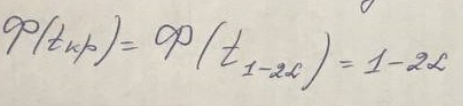 Φ(tкр) = Φ(t₁₋₂ₐ) = 1-2α